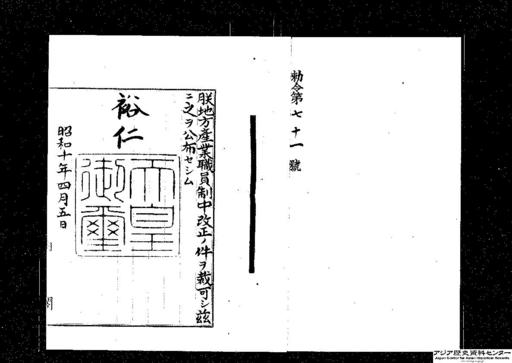 勅令第七十一號
朕地方産業職員制中改正ノ件ヲ裁可シ茲
ニ之ヲ公布セシム
裕仁
天皇
御璽
昭和十年四月五日
アジア歴史資料センター
Japan Center for Asian Historical Records